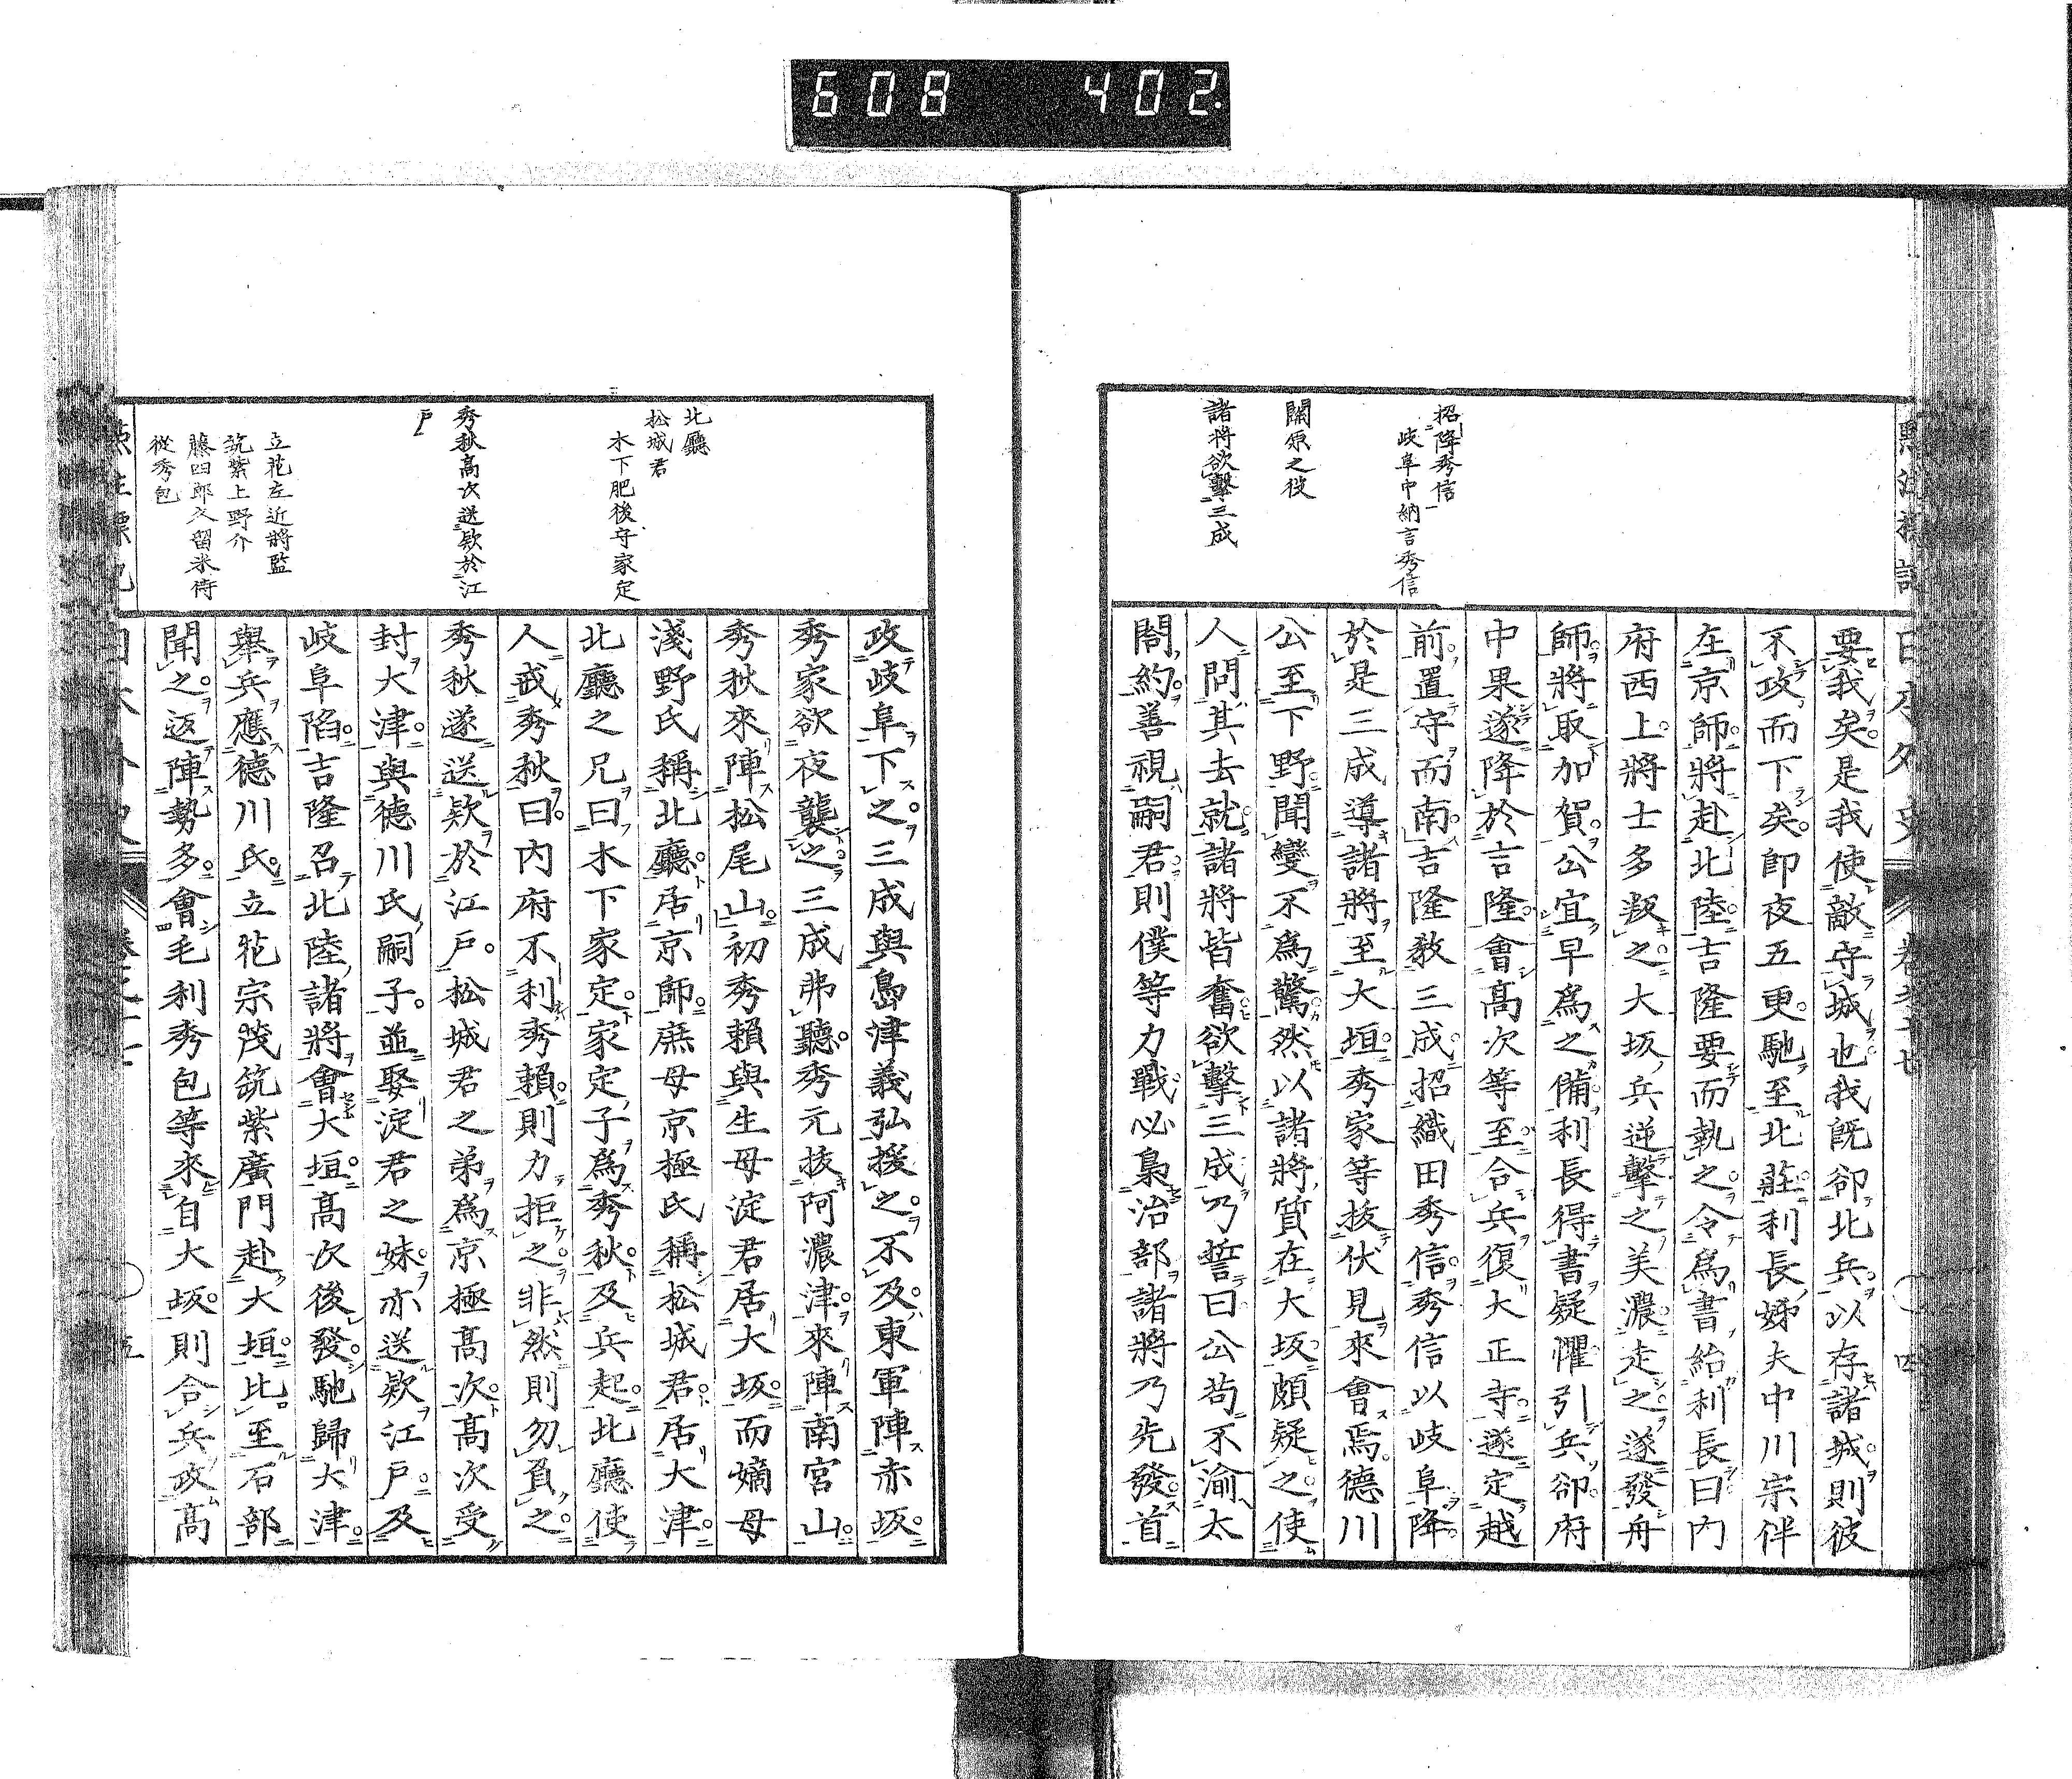 608 402
招降秀信
岐阜中納言秀信
關原之役
諸將欲擊三成
要我矣是我使敵守城也我既卻北兵以存諸城則彼
不攻而下矣即夜五更馳至北莊利長姊夫中川宗伴
在京師將赴北陸吉隆要而執之令爲書紿利長曰内
府西上將士多叛之大坂兵逆擊之美濃走之遂發舟
師將取加賀公宜早爲之備利長得書疑懼引兵卻府
中果遂降於吉隆會高次等至合兵復大正寺遂定越
前置守而南吉隆教三成招織田秀信秀信以岐阜降
於是三成導諸將至大垣秀家等拔伏見來會焉德川
公至下野聞變不爲驚然以諸將質在大坂頗疑之使
人問其去就諸將皆奮欲擊三成乃誓曰公苟不渝太
閤約善視嗣君則僕等力戰必梟治部諸將乃先發首
北廳
松城君
木下肥後守家定
秀秋高次送欵於江
戶
立花左近將監
筑紫上野介
藤四郎久留米侍
從秀包
政岐阜下之三成與島津義弘援之不及東軍陣赤坂
秀家欲夜襲之三成弗聽秀元拔阿濃津來陣南宮山
秀秋來陣松尾山初秀賴與生母淀君居大坂而嫡母
淺野氏稱北廳居京師庶母京極氏稱松城君居大津
北廳之兄曰木下家定家定子爲秀秋及兵起北廳使
人戒秀秋曰内府不利秀賴則力拒之非然則勿負之
秀秋遂送欵於江戶松城君之弟爲京極高次高次受
封大津與德川氏嗣子並娶淀君之妹亦送欵江戶及
岐阜陷吉隆召北陸諸將會大垣高次後發馳歸大津
舉兵應德川氏立花宗茂筑紫廣門赴大垣比至石部
聞之返陣勢多會毛利秀包等來自大坂則合兵政高